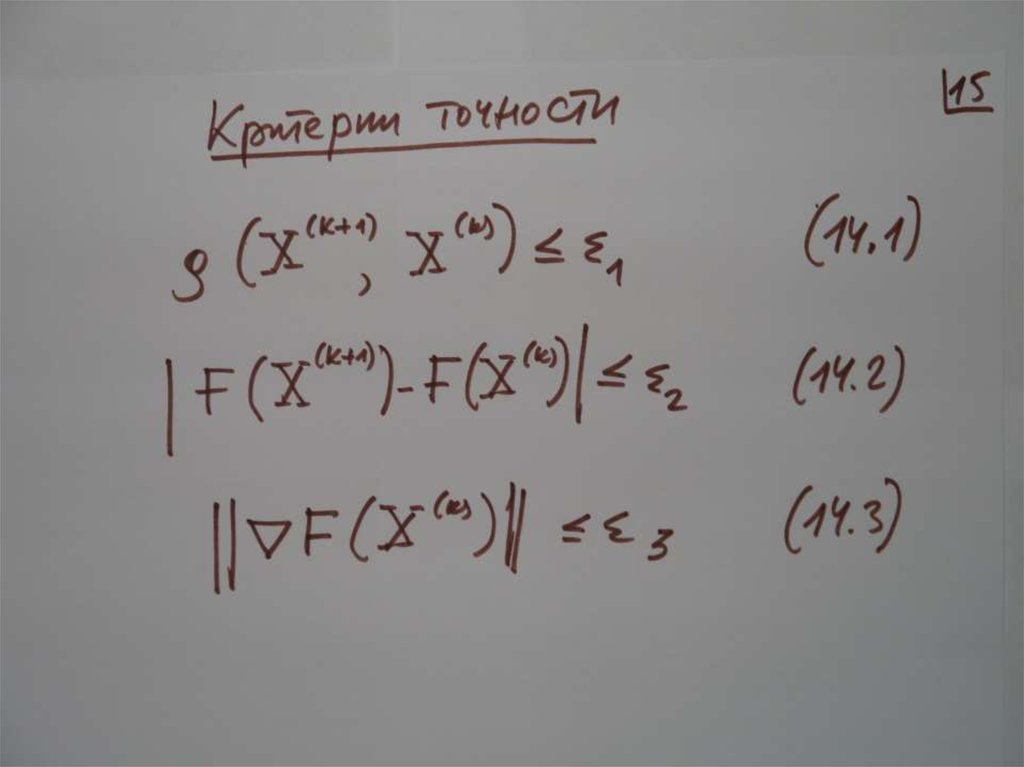 15
Критерии точности
ρ (X^(k+1), X^(k)) ≤ ε₁ (14.1)
| F(X^(k+1)) - F(X^(k)) | ≤ ε₂ (14.2)
‖∇F(X^(k))‖ ≤ ε₃ (14.3)